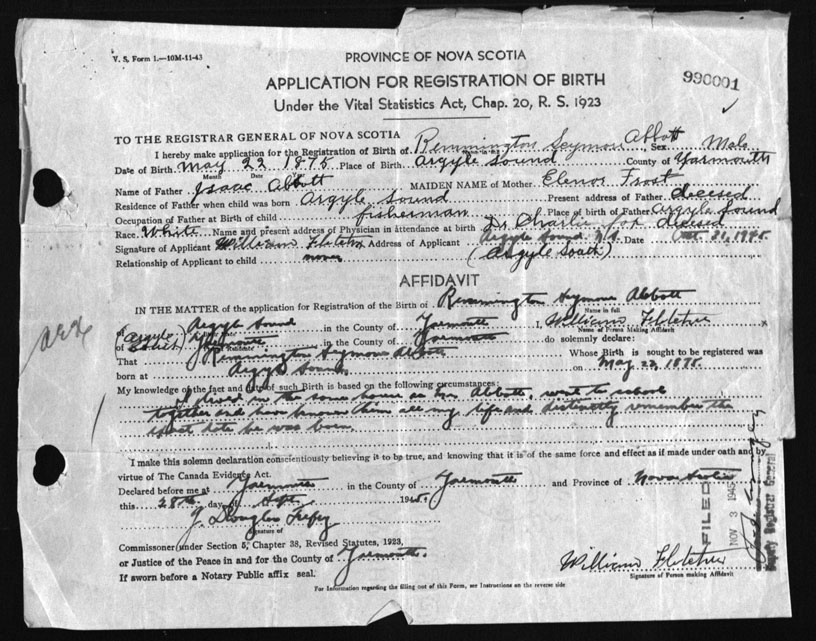 V. S. Form 1.—10M-11-43
PROVINCE OF NOVA SCOTIA
APPLICATION FOR REGISTRATION OF BIRTH
Under the Vital Statistics Act, Chap. 20, R. S. 1923
990001
TO THE REGISTRAR GENERAL OF NOVA SCOTIA
I hereby make application for the Registration of Birth of Remmington Seymour Abbott Sex Male
Date of Birth May 22 1875 Place of Birth Argyle Sound County of Yarmouth
Month Date
Name of Father Isaac Abbott MAIDEN NAME of Mother Elenor Frost
Residence of Father when child was born Argyle Sound Present address of Father decesed
Occupation of Father at Birth of child fisherman Place of birth of Father Argyle Sound
Race White Name and present address of Physician in attendance at birth Dr Charlie Fox decesed
Signature of Applicant William Fletcher Address of Applicant Argyle Sound N.S. Date Oct. 31, 1945
Relationship of Applicant to child none (Argyle South)
AFFIDAVIT
IN THE MATTER of the application for Registration of the Birth of Remmington Seymour Abbott
Name in full
of Argyle Sound in the County of Yarmouth I, William Fletcher
Name of Person Making Affidavit
of (Argyle in the County of Yarmouth do solemnly declare:
That Remmington Seymour Abbott Whose Birth is sought to be registered was
born at Argyle Sound on May 22 1875.
My knowledge of the fact and date of such Birth is based on the following circumstances:
I lived in the same house as Mr. Abbott, went to school
together and have known them all my life and distinctly remember the
exact date he was born.
I make this solemn declaration conscientiously believing it to be true, and knowing that it is of the same force and effect as if made under oath and by
virtue of The Canada Evidence Act.
Declared before me at Yarmouth in the County of Yarmouth and Province of Nova Scotia
this 28th day of 1945.
J. Douglas
Signature of
Commissioner under Section 5, Chapter 38, Revised Statutes, 1923,
or Justice of the Peace in and for the County of Yarmouth.
If sworn before a Notary Public affix seal.
William Fletcher
Signature of Person making Affidavit
For Information regarding the filling out of this Form, see Instructions on the reverse side
FILED
NOV 3 1945
Deputy Registrar General